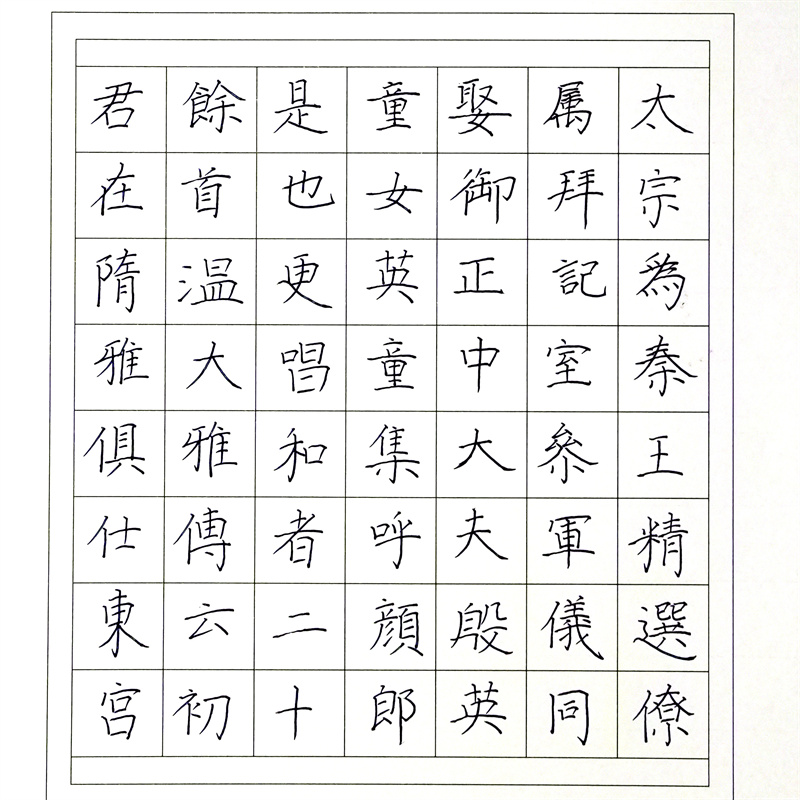 太宗爲秦王精選僚
属拜記室參軍儀同
娶御正中大夫殷英
童女英童集呼顔郎
是也更唱和者二十
餘首温大雅傳云初
君在隋雅俱仕東宫